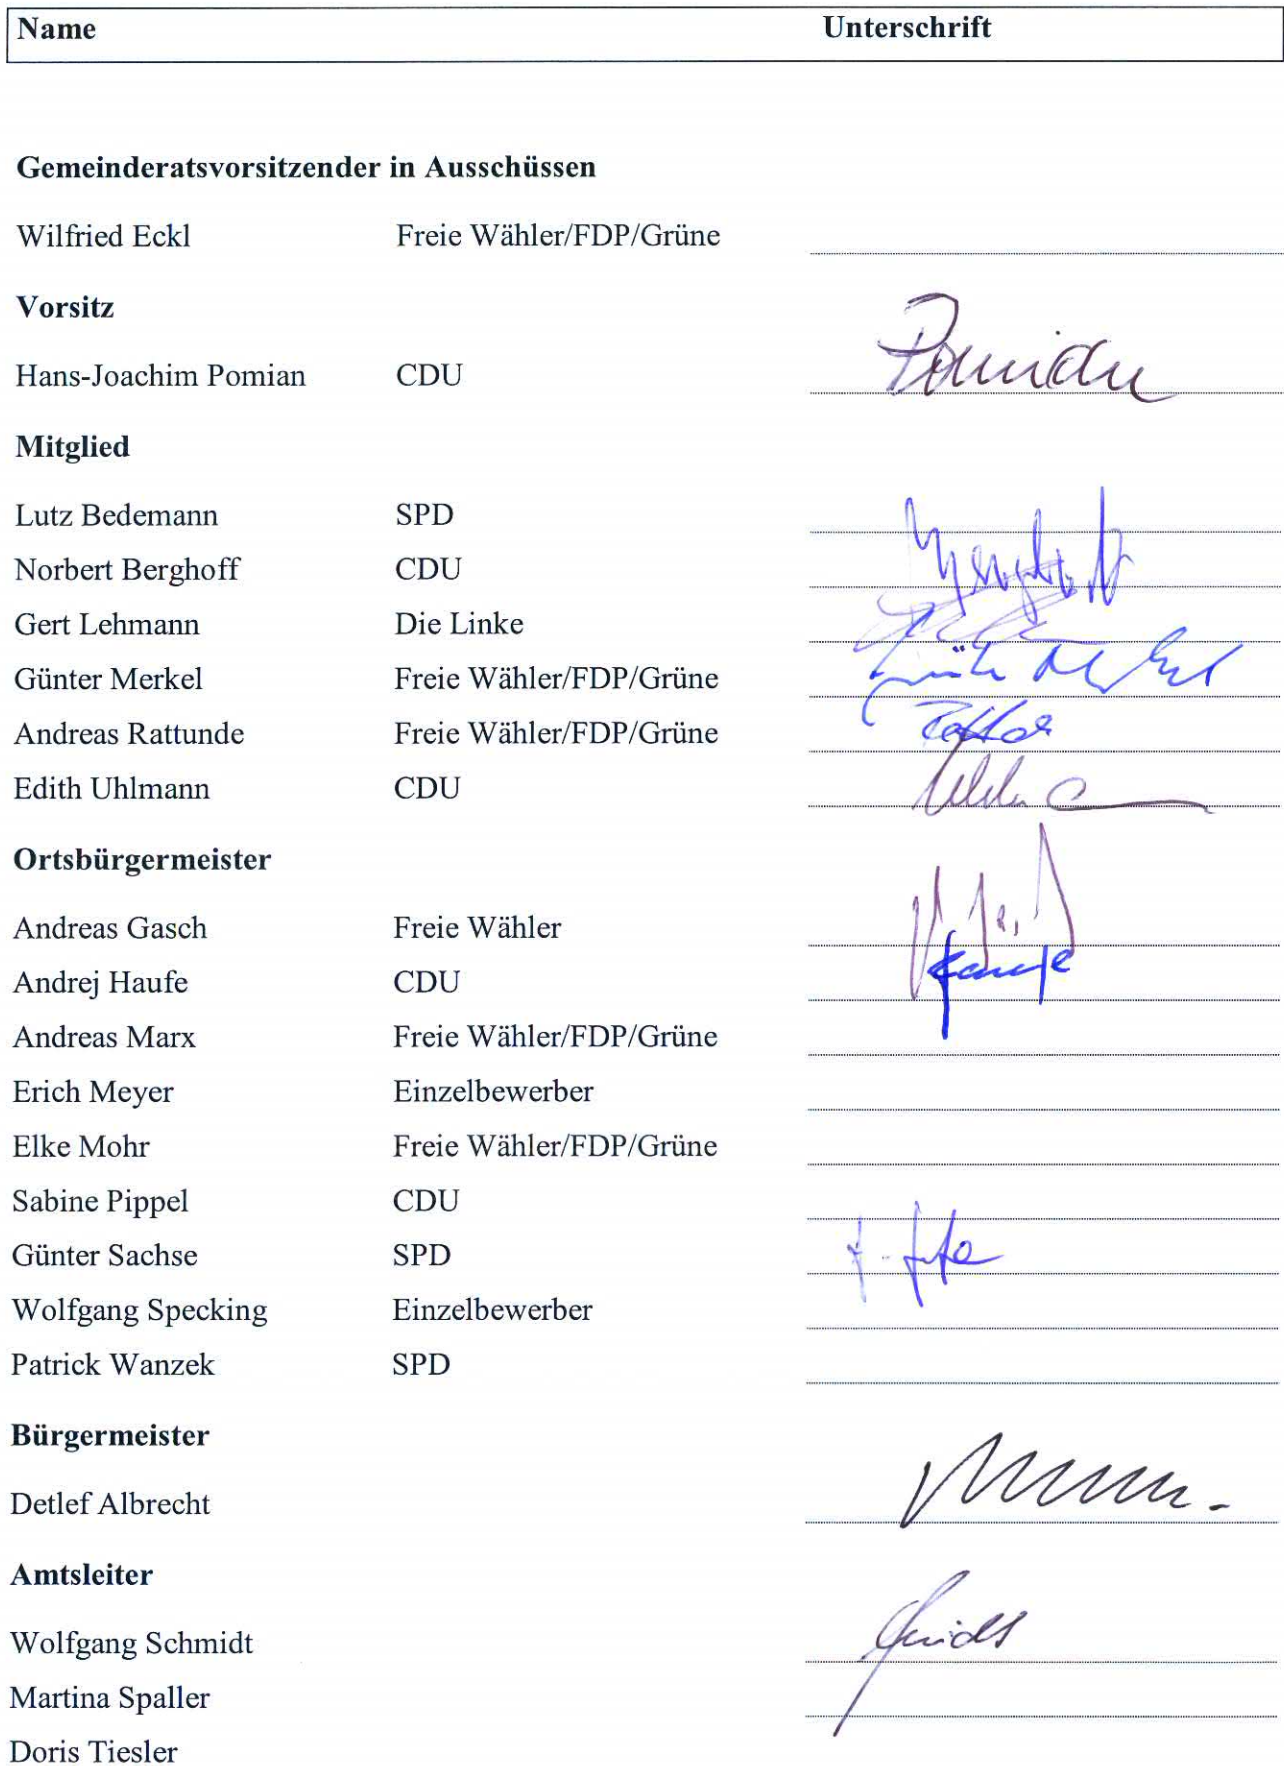 Name Unterschrift
Gemeinderatsvorsitzender in Ausschüssen
Wilfried Eckl Freie Wähler/FDP/Grüne
Vorsitz
Hans-Joachim Pomian CDU Pomian
Mitglied
Lutz Bedemann SPD
Norbert Berghoff CDU Berghoff
Gert Lehmann Die Linke
Günter Merkel Freie Wähler/FDP/Grüne Günter Merkel
Andreas Rattunde Freie Wähler/FDP/Grüne
Edith Uhlmann CDU
Ortsbürgermeister
Andreas Gasch Freie Wähler
Andrej Haufe CDU Haufe
Andreas Marx Freie Wähler/FDP/Grüne
Erich Meyer Einzelbewerber
Elke Mohr Freie Wähler/FDP/Grüne
Sabine Pippel CDU
Günter Sachse SPD
Wolfgang Specking Einzelbewerber
Patrick Wanzek SPD
Bürgermeister
Detlef Albrecht
Amtsleiter
Wolfgang Schmidt
Martina Spaller
Doris Tiesler